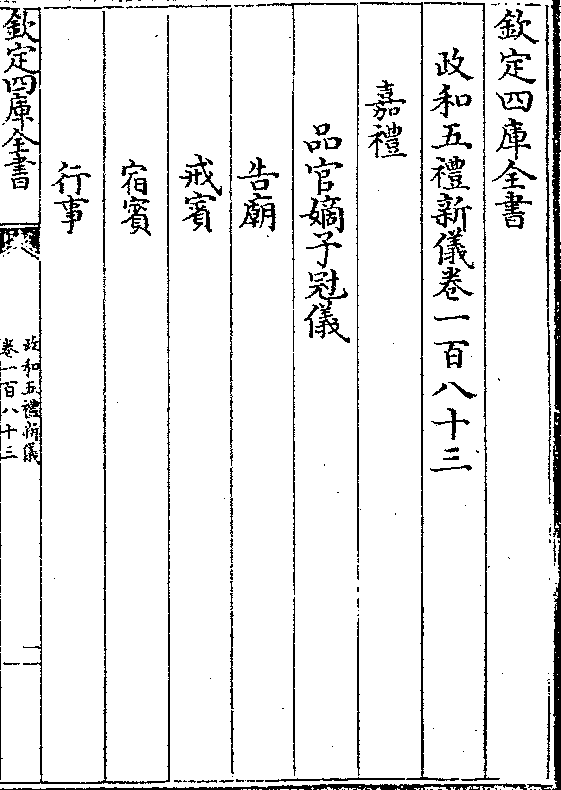 欽定四庫全書
政和五禮新儀卷一百八十三
嘉禮
品官嫡子冠儀
告廟
戒賓
宿賓
行事
欽定四庫全書
政和五禮新儀
卷一百八十三